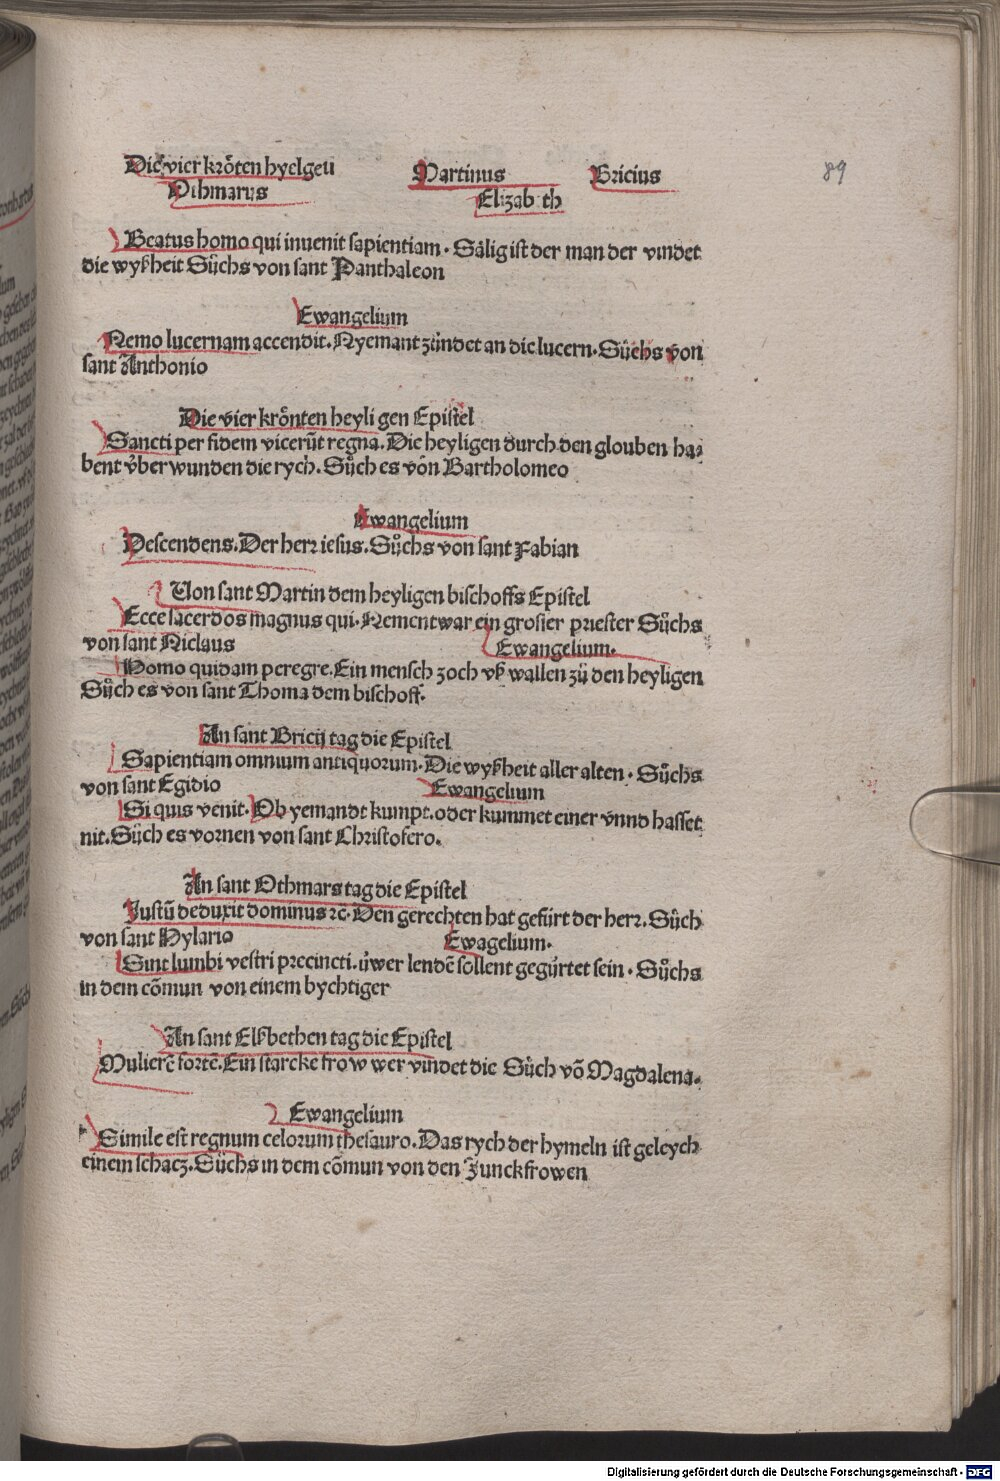 Die vier krőten hyelgeu Martinus Bricius 89
Othmarus Elizab th
Beatus homo qui inuenit sapientiam. Sälig ist der man der vindet
die wyßheit Sůchs von sant Panthaleon
Ewangelium
Nemo lucernam accendit. Nyemant zündet an die lucern. Sůchs von
sant Anthonio
Die vier krőnten heyli gen Epistel
Sancti per fidem vicerūt regna. Die heyligen durch den glouben ha⸗
bent v̈ber wunden die rych. Sůch es von Bartholomeo
Ewangelium
Descendens. Der herr iesus. Sůchs von sant Fabian
Von sant Martin dem heyligen bischoffs Epistel
Ecce sacerdos magnus qui. Nement war ein grosser priester Sůchs
von sant Niclaus Ewangelium.
Homo quidam peregre. Ein mensch zoch vß wallen zů den heyligen
Sůch es von sant Thoma dem bischoff.
An sant Bricij tag die Epistel
Sapientiam omnium antiquorum. Die wyßheit aller alten. Sůchs
von sant Egidio Ewangelium
Si quis venit. Ob yemandt kumpt. oder kummet einer vnnd hasset
nit. Sůch es vornen von sant Christofero.
An sant Othmars tag die Epistel
Justū deduxit dominus ꝛc̄. Den gerechten hat gefürt der herr. Sůch
von sant Hylario Ewagelium.
Sint lumbi vestri precincti. üwer lendē sollent gegürtet sein. Sůchs
in dem cōmun von einem bychtiger
An sant Elßbethen tag die Epistel
Mulierē fortē. Ein starcke frow wer vindet die Sůch vō Magdalena.
Ewangelium
Simile est regnum celorum thesauro. Das rych der hymeln ist geleych
einem schacz. Sůchs in dem cōmun von den Junckfrowen
Digitalisierung gefördert durch die Deutsche Forschungsgemeinschaft - DFG